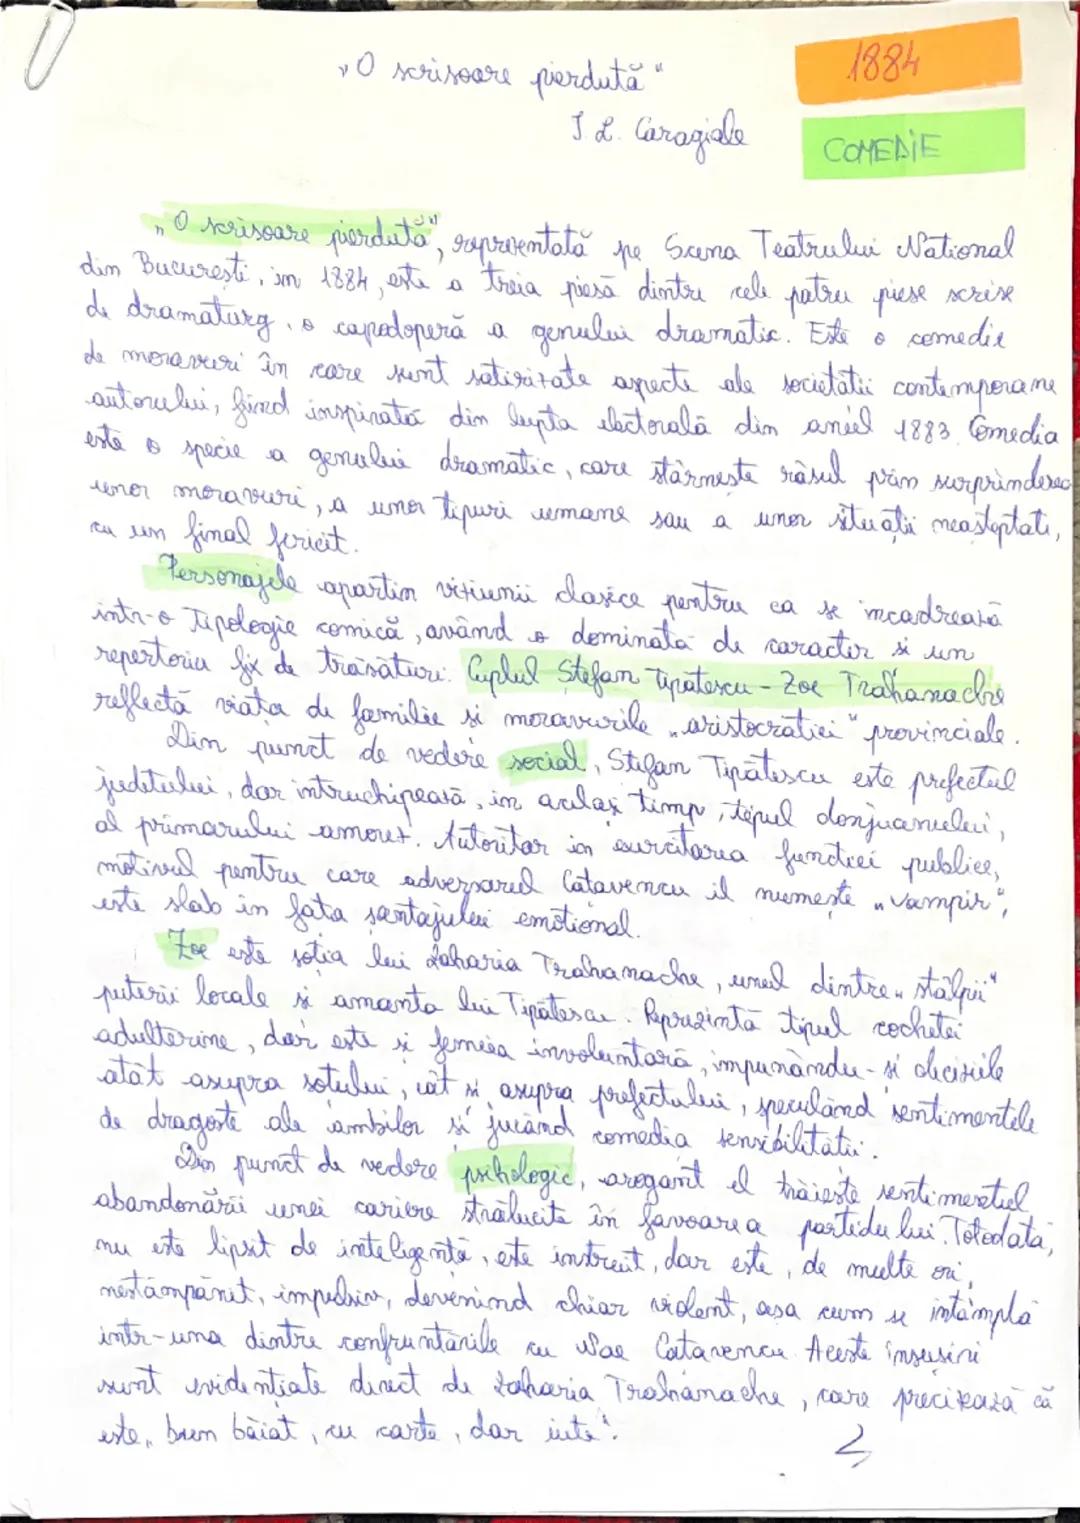 „O scrisoare pierdută"
1884
I L. Caragiale
COMEDIE
„O scrisoare pierdută", reprezentată pe Scena Teatrului National
din București, în 1884, este a treia piesă dintre cele patru piese scrise
de dramaturg, o capodoperă a genului dramatic. Este o comedie
de moravuri în care sunt satirizate aspecte ale societătii contemporane
autorului, fiind inspirată din lupta electorală din anul 1883. Comedia
este o specie a genului dramatic, care stârnește râsul prin surprinderea
unor moravuri, a unor tipuri umane sau a unor situatii neasteptate,
cu un final fericit.
Personajele apartin viziunii clasice pentru ca se incadrează
intr-o tipologie comică, având o dominată de caracter si un
repertoriu fix de trăsături. Cuplul Ștefan Tipătescu - Zoe Trahanache
reflectă viata de familie si moravurile „aristocratiei" provinciale.
Din punct de vedere social, Stefan Tipătescu este prefectul
judetului, dar intruchipează, in acelasi timp, tipul donjuanului,
al primarului amorez. Autoritar in exercitarea functiei publice,
motivul pentru care adversarul Catavencu il numește „vampir",
este slab in fata santajului emotional.
Zoe este sotia lui Zaharia Trahanache, unul dintre „stâlpii"
puterii locale si amanta lui Tipătescu. Reprezintă tipul cochetei
adulterine, dar este si femeia involuntară, impunându-si deciziile
atât asupra sotului, cât si asupra prefectului, speculând sentimentele
de dragoste ale ambilor si jucând comedia sensibilitătii.
Din punct de vedere psihologic, arogant el trăieste sentimentul
abandonării unei cariere strălucite în favoarea partidului. Totodată,
nu este lipsit de inteligentă, este instruit, dar este, de multe ori,
nestămpânit, impulsiv, devenind chiar violent, asa cum se intâmplă
intr-una dintre confruntările cu Nae Catavencu. Aceste însusiri
sunt evidentiate direct de Zaharia Trahanache, care precizează că
este „bun băiat, cu carte, dar iute".